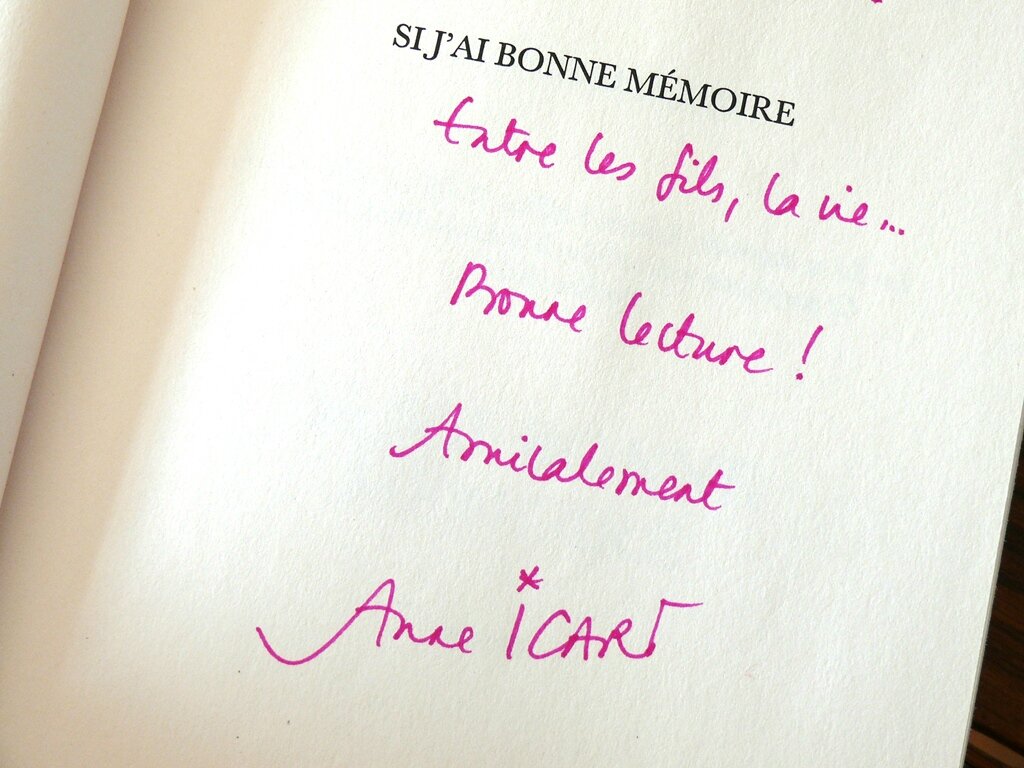 SI J'AI BONNE MÉMOIRE
Entre les fils, la vie...
Bonne lecture !
Amicalement
Anne ICART